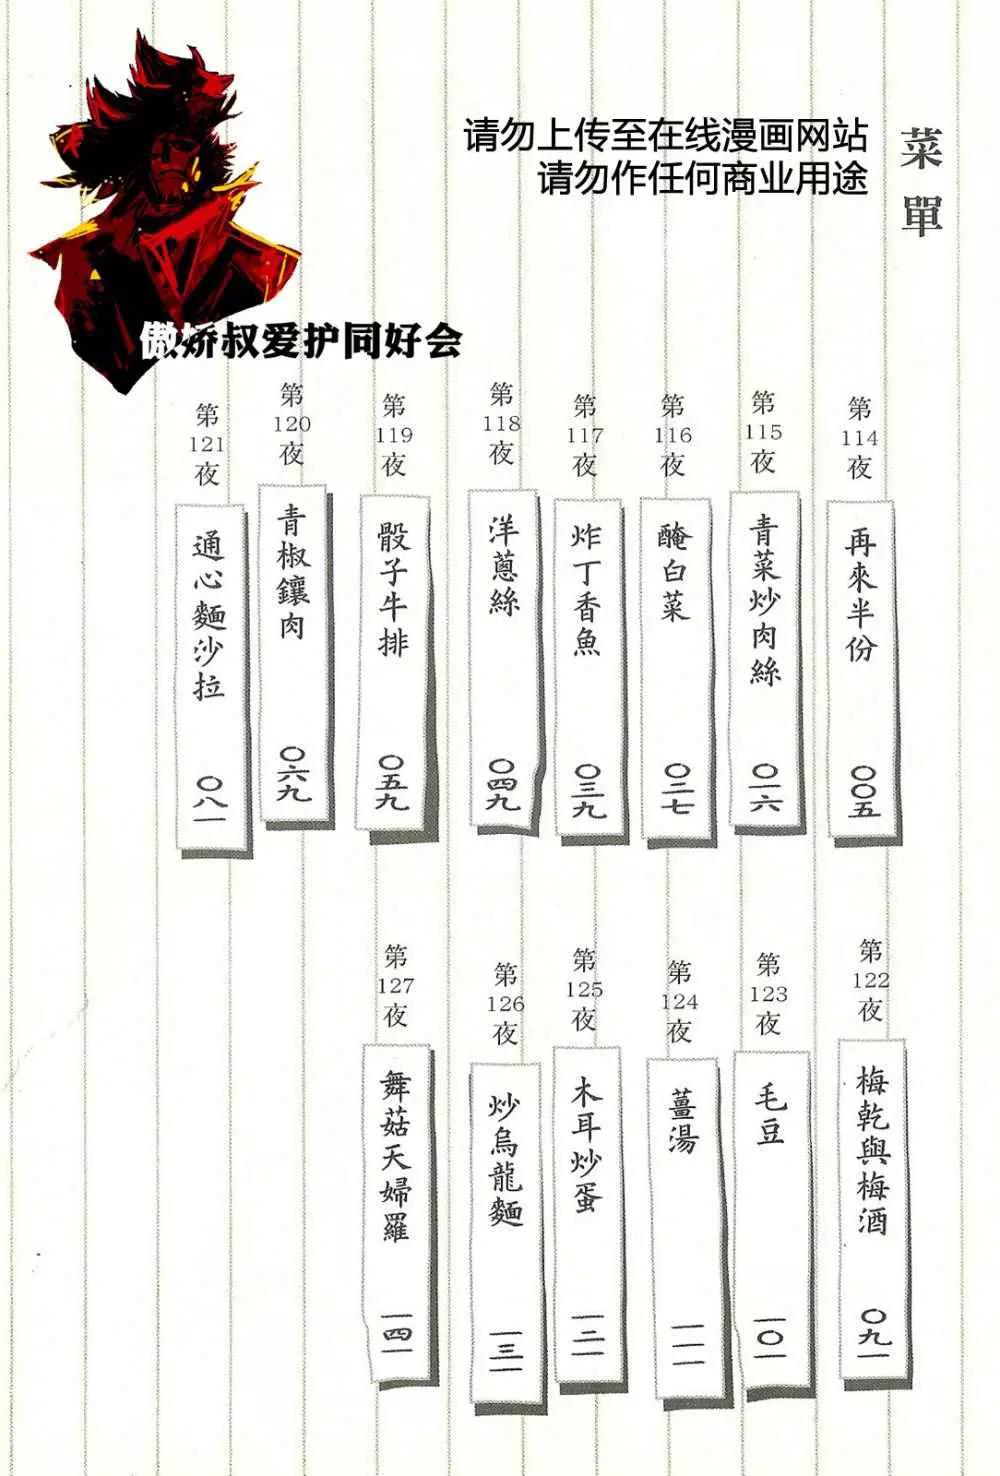 菜單
请勿上传至在线漫画网站
请勿作任何商业用途
傲娇叔爱护同好会
第114夜
再來半份
〇〇五
第115夜
青菜炒肉絲
〇一六
第116夜
醃白菜
〇二七
第117夜
炸丁香魚
〇三九
第118夜
洋蔥絲
〇四九
第119夜
骰子牛排
〇五九
第120夜
青椒鑲肉
〇六九
第121夜
通心麵沙拉
〇八一
第122夜
梅乾與梅酒
〇九一
第123夜
毛豆
一〇一
第124夜
薑湯
一一一
第125夜
木耳炒蛋
一二一
第126夜
炒烏龍麵
一三一
第127夜
舞菇天婦羅
一四一